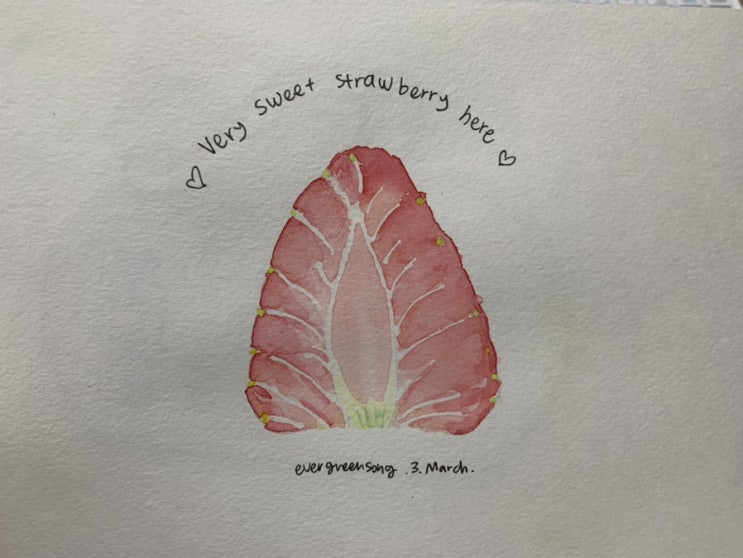 ♡ Very sweet strawberry here ♡
evergreensong .3.March.